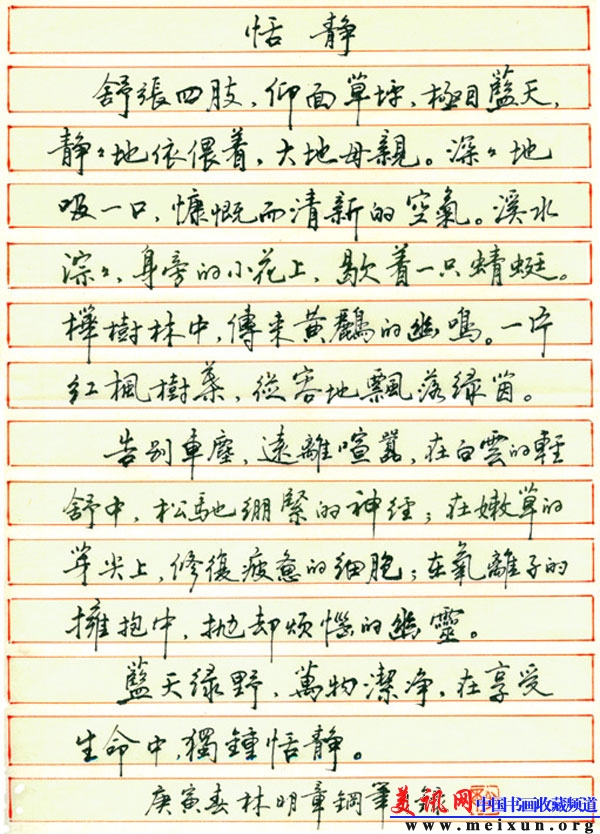 恬静
舒張四肢，仰面草坪，極目藍天，
静々地依偎着，大地母親。深々地
吸一口，慷慨而清新的空氣。溪水
淙々，身旁的小花上，歇着一只蜻蜓。
樺樹林中，傳来黄鸝的幽鳴。一片
红楓樹葉，從容地飄落绿茵。
告别車塵，遠離喧囂，在白雲的輕
舒中，松馳绷緊的神经；在嫩草的
芽尖上，修復疲惫的细胞；在氧離子的
擁抱中，抛却烦惱的幽靈。
藍天绿野，萬物潔净，在享受
生命中，獨鍾恬静。
庚寅春林明章鋼筆錄
美讯网 中国书画收藏频道
www.meixun.org